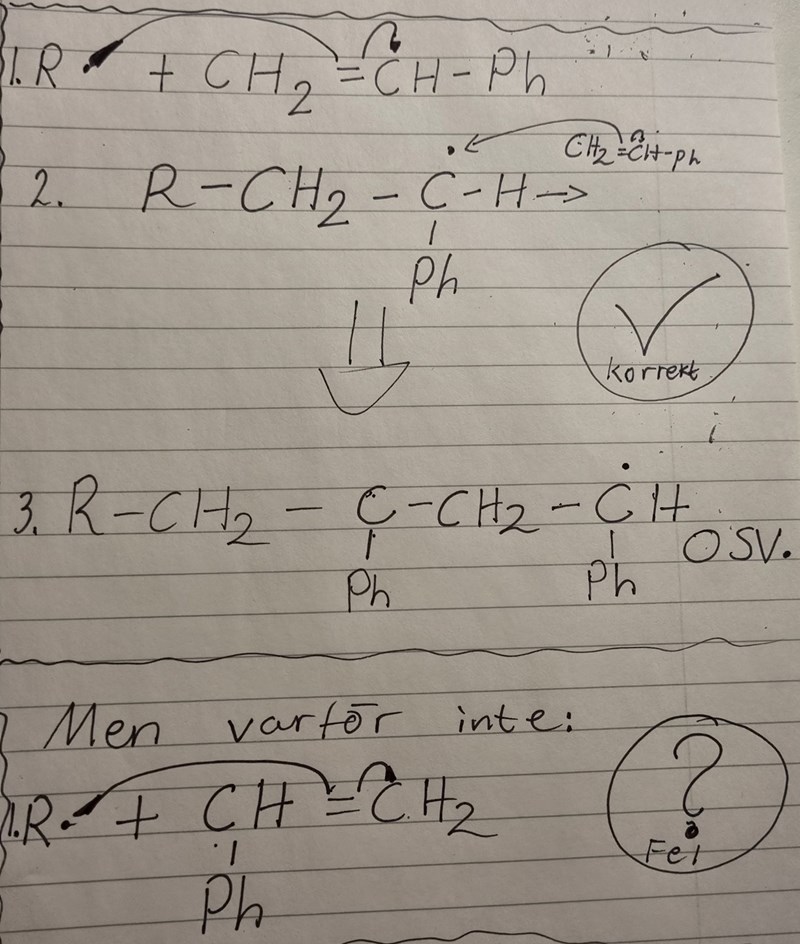 1. R• + CH₂=CH-Ph
CH₂=CH-Ph
2. R-CH₂-Ċ-H→
Ph
korrekt
3. R-CH₂-C-CH₂-ĊH
Ph Ph OSV.
Men varför inte:
1. R• + CH=CH₂
Ph
?
Fel